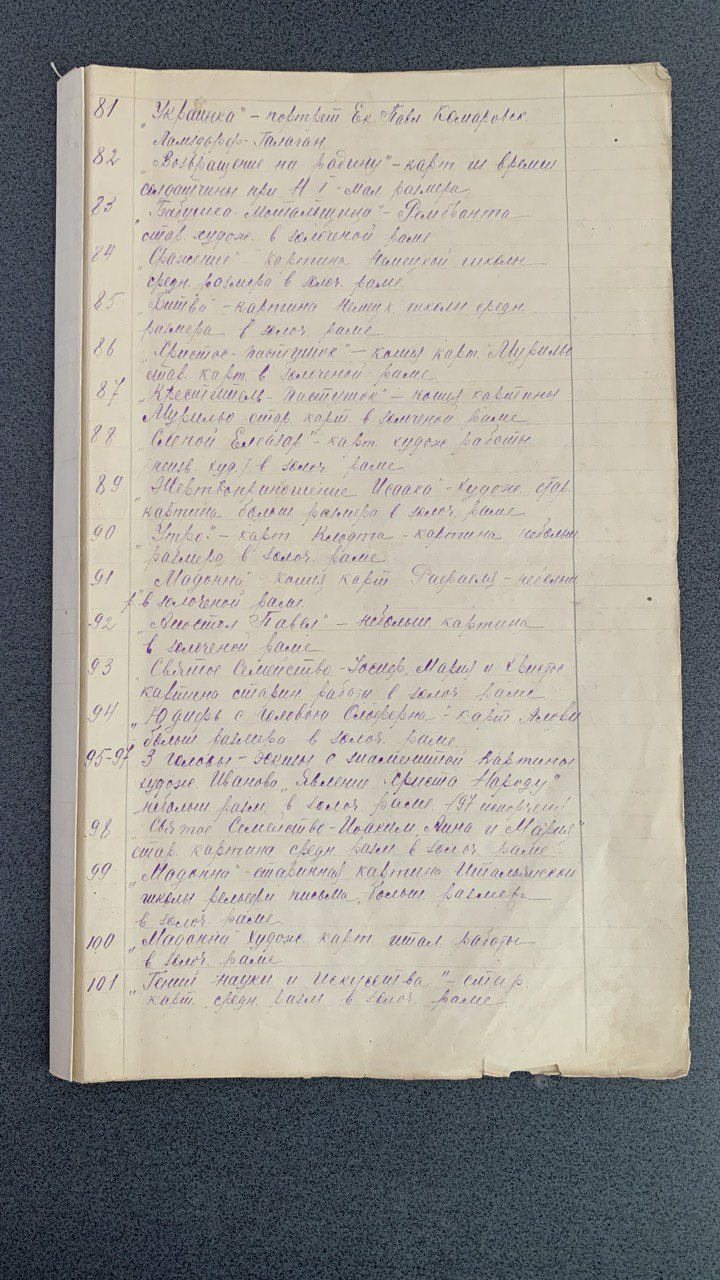 81 „Украинка" – портрет Ек. Павл. Комаровск
Ламздорф-Галаган
82 „Возвращение на родину" – карт. из времен
солдатчины при Н I – мал размера
83 „Бабушка-Мотальщица" – Рембранта
стар. худож. в золоченой раме
84 „Сражение" картина Немецкой школы
средн. размера в золоч. раме.
85 „Битва" – картина Немецк. школы средн.
размера в золоч. раме
86 „Христос-пастушок" – копия карт. Мурильо
стар. карт. в золоченой раме
87 „Креститель-пастушок" – копия картины
Мурильо стар. карт. в золоченой раме
88 „Слепой Елеазар" – карт. худож работы
/неизв. худ/ в золоч. раме
89 „Жертвоприношение Исаака" – худож. стар.
картина больш. размера в золоч раме
90 „Утро." – карт Клодта – картина небольш.
размера в золоч. раме
91 „Мадонна" копия карт Рафаеля – небольш
р. в золоченой раме
92 „Апостол Павел" – небольш картина
в золоченой раме
93 „Святое Семейство – Иосиф, Мария и Христос
картина старин. работы в золоч раме
94 „Юдифь с головою Олоферна" – карт
больш размера в золоч. раме.
95-97 3 головы – с знаменитой картины
худож. Иванова „Явление Христа Народу"
небольш разм. в золоч. раме (97 испорчен)
98 „Святое Семейство – Иоаким, Анна и Мария"
стар. картина средн разм в золоч раме.
99 „Мадонна" – старинная картина Итальянской
школы рельефн письма, больш. размера
в золоч. раме.
100 „Мадонна" худож. карт итал работы
в золоч. раме.
101 „Гений науки и искусства" – стар
карт. средн. разм в золоч раме